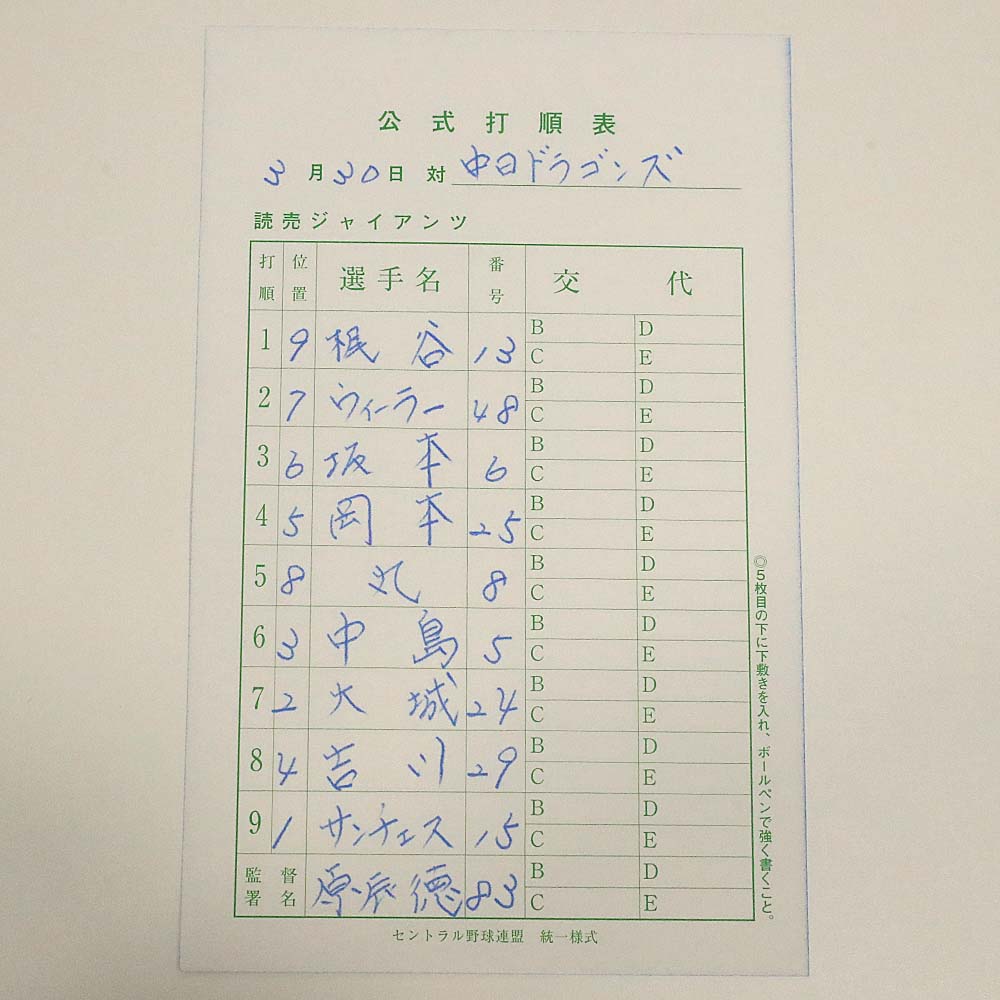 公式打順表
3月30日 対 中日ドラゴンズ
読売ジャイアンツ
打順 位置 選手名 番号 交代
1 9 梶谷 13 B D
C E
2 7 ウィーラー 48 B D
C E
3 6 坂本 6 B D
C E
4 5 岡本 25 B D
C E
5 8 丸 8 B D
C E
6 3 中島 5 B D
C E
7 2 大城 24 B D
C E
8 4 吉川 29 B D
C E
9 1 サンチェス 15 B D
C E
監督署名 原辰徳 83 B D
C E
セントラル野球連盟 統一様式
◎5枚目の下に下敷きを入れ、ボールペンで強く書くこと。